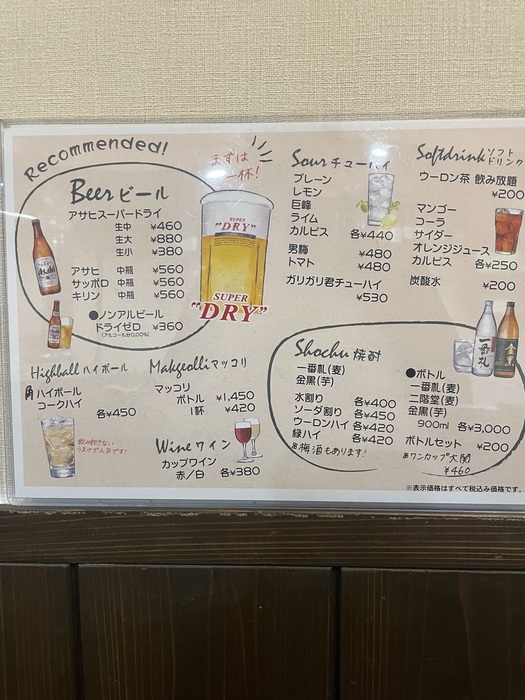 Recommended!
まずは
一杯!
Beer ビール
アサヒスーパードライ
生中 ¥460
生大 ¥880
生小 ¥380
アサヒ 中瓶 ¥560
サッポロ 中瓶 ¥560
キリン 中瓶 ¥560
●ノンアルビール
ドライゼロ ¥360
(アルコール分0.00%)
Asahi
SUPER
"DRY"
SUPER
"DRY"
Highball ハイボール
角ハイボール
コークハイ
各¥450
飲み飽きない
うまさで人気です!
Makgeolli マッコリ
マッコリ
ボトル ¥1,450
1杯 ¥420
Wine ワイン
カップワイン
赤/白 各¥380
Sour チューハイ
プレーン
レモン
巨峰
ライム
カルピス 各¥440
男梅 ¥480
トマト ¥480
ガリガリ君チューハイ
¥530
Softdrink ソフトドリンク
ウーロン茶 飲み放題
¥200
マンゴー
コーラ
サイダー
オレンジジュース
カルピス 各¥250
炭酸水 ¥200
Shochu 焼酎
一番札(麦)
金黒(芋)
水割り 各¥400
ソーダ割り 各¥450
ウーロンハイ 各¥420
緑ハイ 各¥420
※梅酒もあります!
一番札
金黒
●ボトル
一番札(麦)
二階堂(麦)
金黒(芋)
900ml 各¥3,000
ボトルセット ¥200
※ワンカップ大関
¥460
※表示価格はすべて税込み価格です。